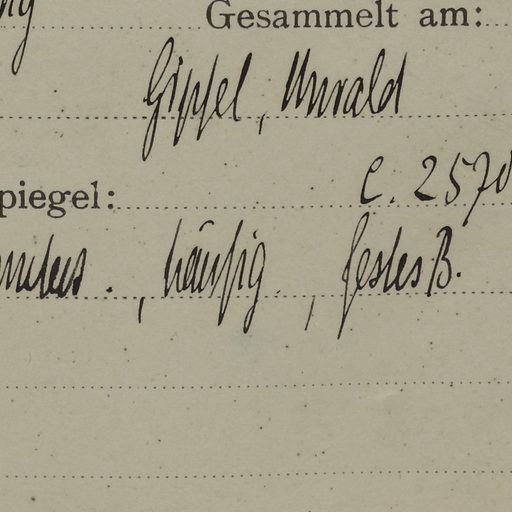 Gesammelt am:
Gipfel, Unwald
piegel: c. 2570
, häufig, festes B.